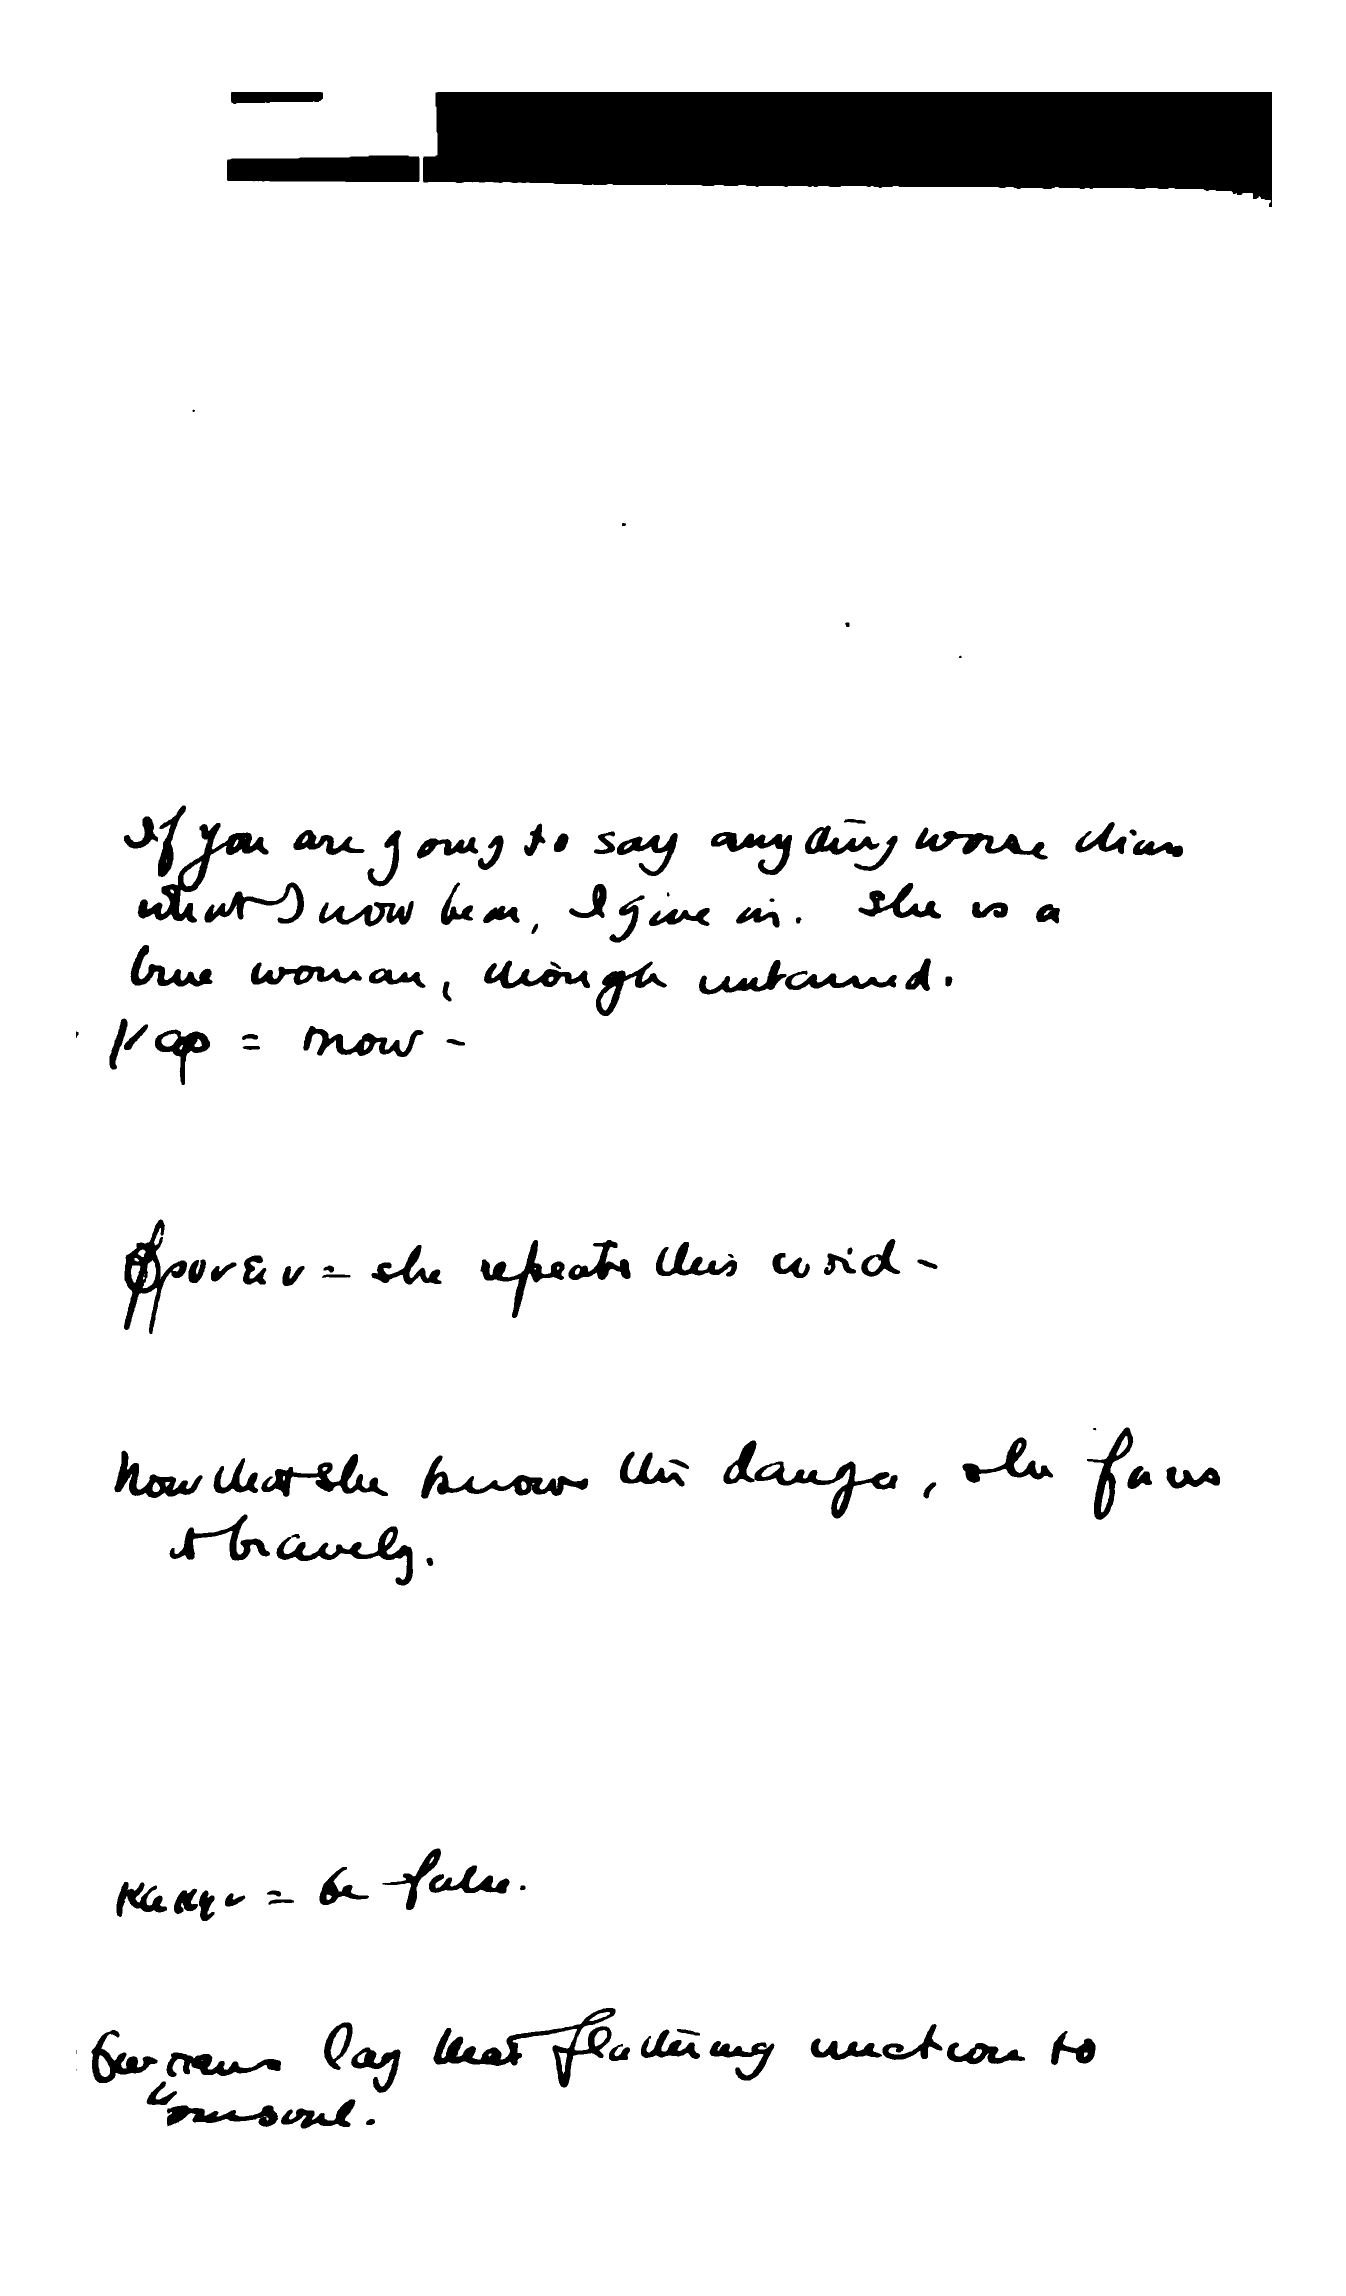 If you are going to say anything worse than
what I now bear, I give in. She is a
true woman, though untamed.
γαρ = now -
φρονειν = she repeats this word -
Now that she knows the danger, she faces
it bravely.
κακην = be false.
lay that flattering unction to
soul.